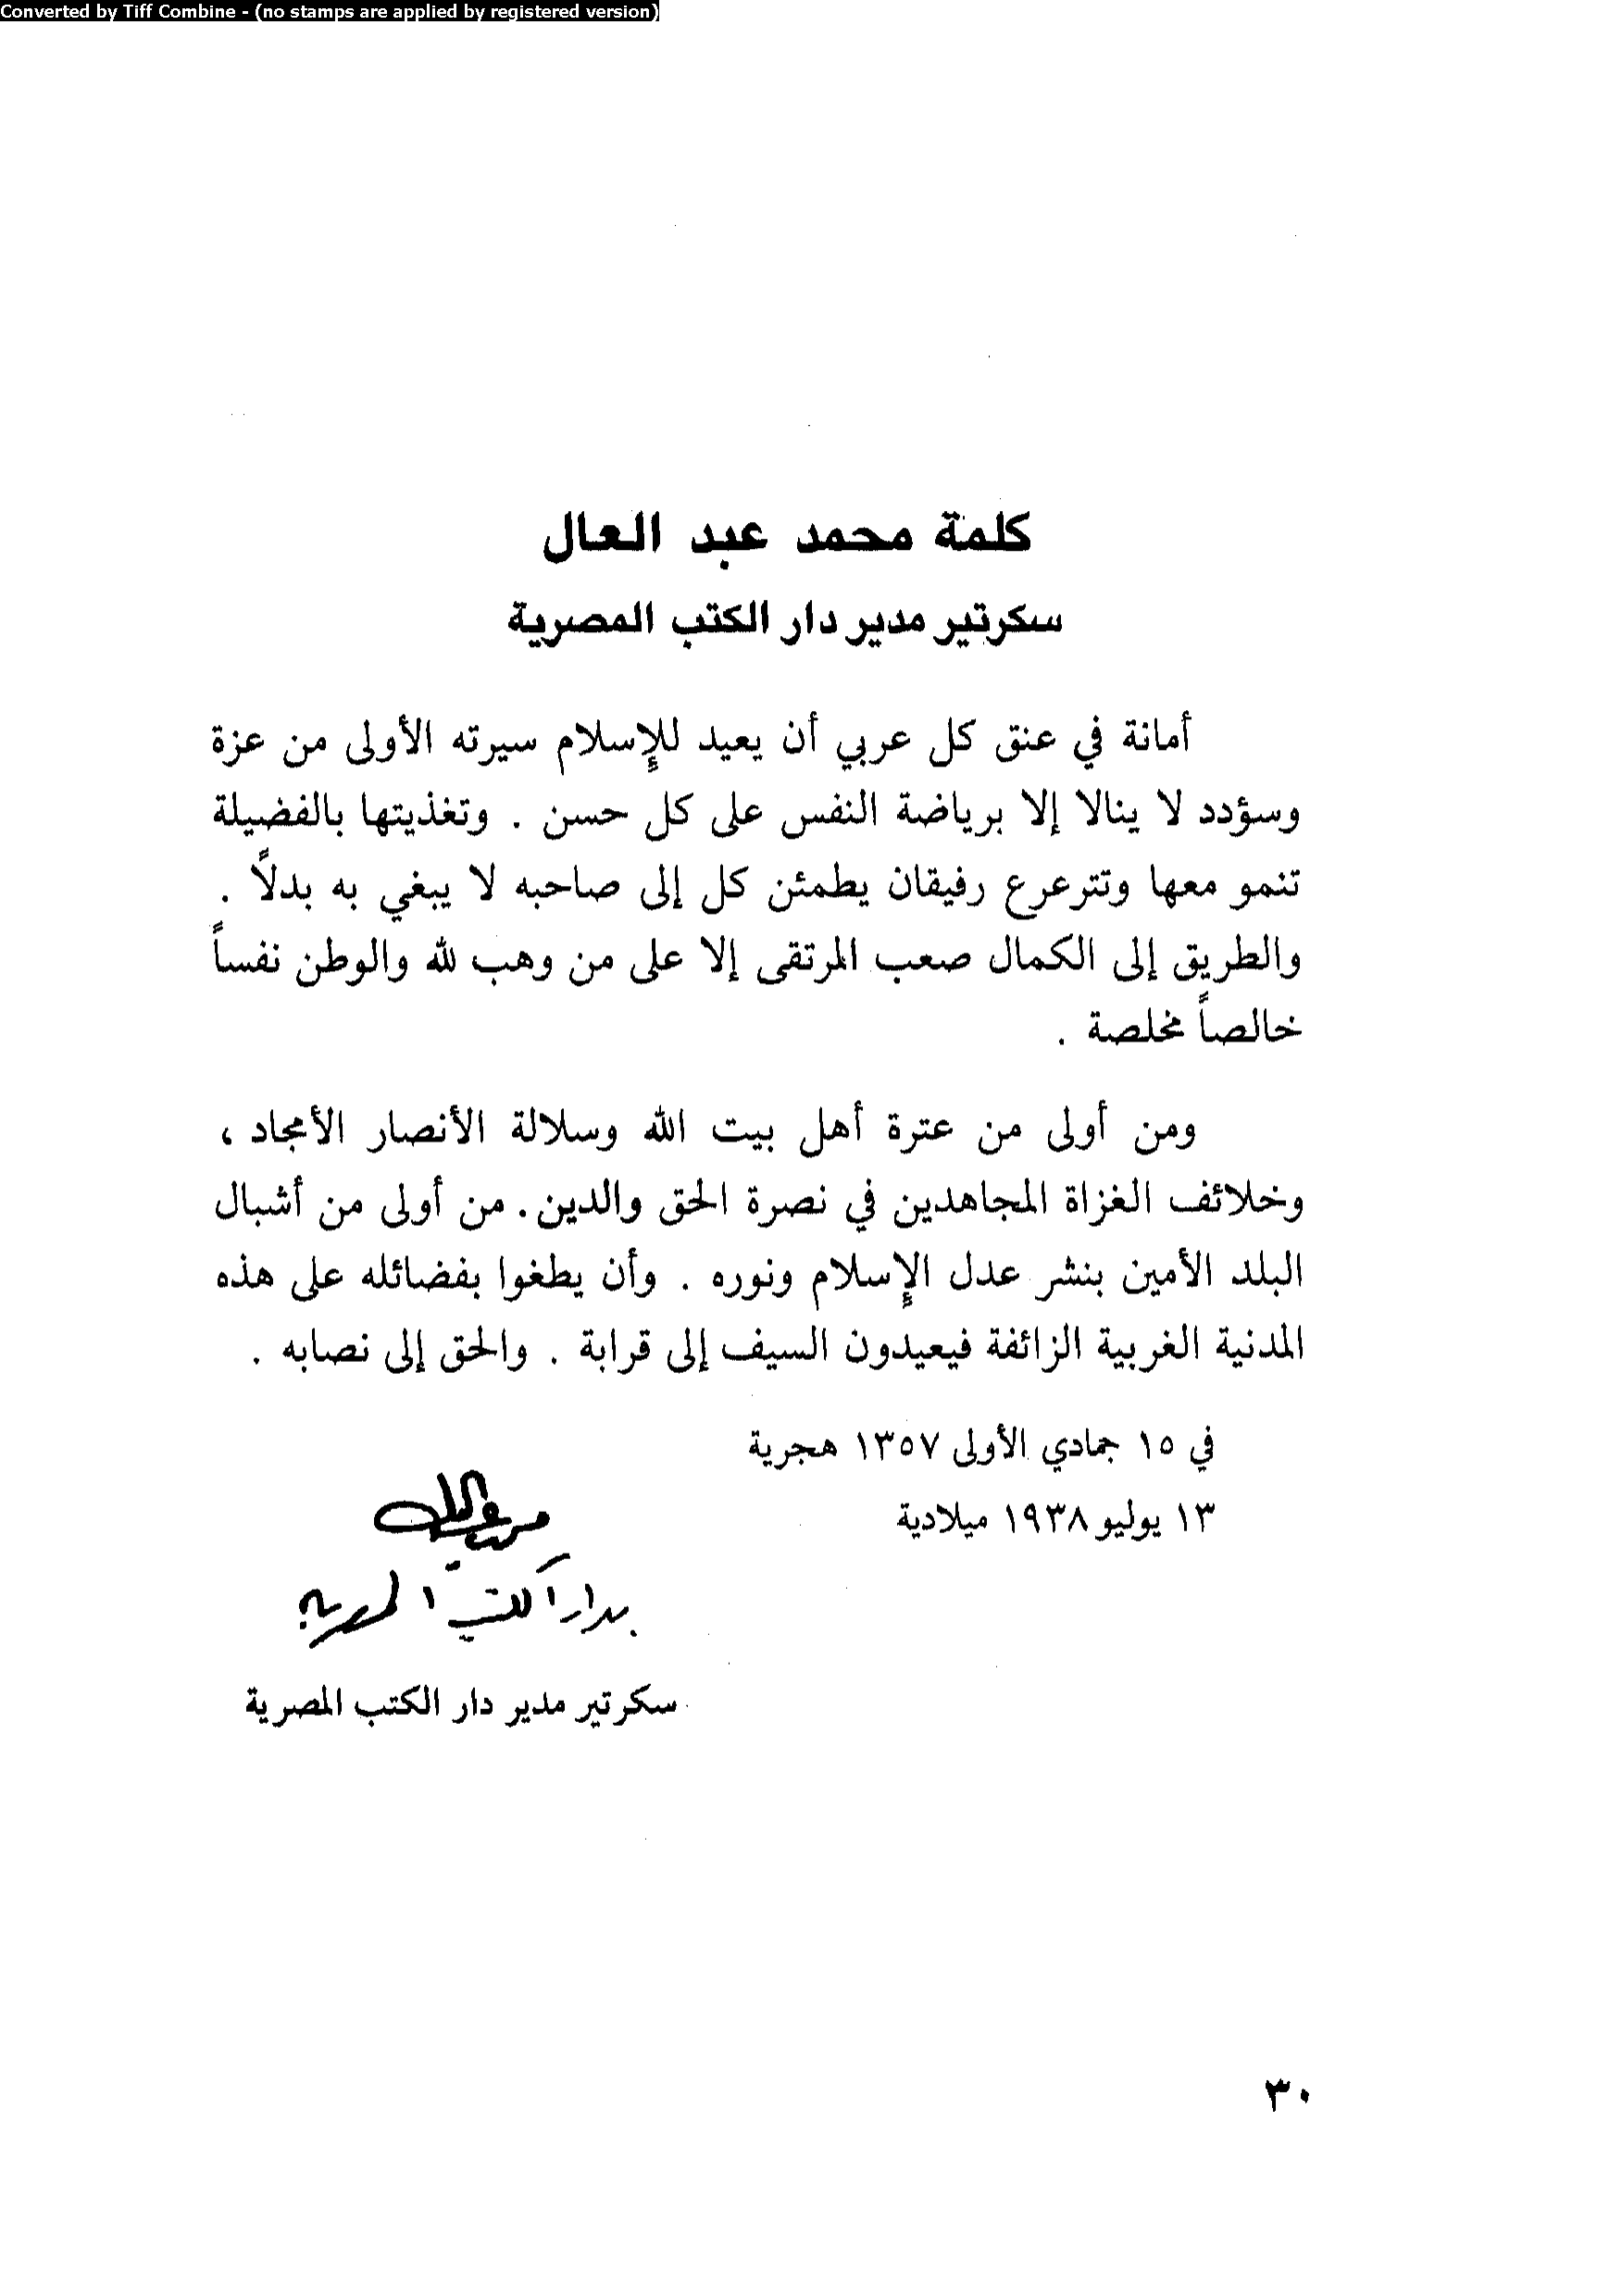 Converted by Tiff Combine - (no stamps are applied by registered version)
كلمة محمد عبد العال
سكرتير مدير دار الكتب المصرية
أمانة في عنق كل عربي أن يعيد للإسلام سيرته الأولى من عزة
وسؤدد لا ينالا إلا برياضة النفس على كل حسن . وتغذيتها بالفضيلة
تنمو معها وتترعرع رفيقان يطمئن كل إلى صاحبه لا يبغي به بدلاً .
والطريق إلى الكمال صعب المرتقى إلا على من وهب لله والوطن نفساً
خالصاً مخلصة .
ومن أولى من عترة أهل بيت الله وسلالة الأنصار الأمجاد ،
وخلائف الغزاة المجاهدين في نصرة الحق والدين . من أولى من أشبال
البلد الأمين بنشر عدل الإسلام ونوره . وأن يطغوا بفضائله على هذه
المدنية الغربية الزائفة فيعيدون السيف إلى قرابة . والحق إلى نصابه .
في ١٥ جمادي الأولى ١٣٥٧ هجرية
١٣ يوليو ١٩٣٨ ميلادية
بدار الكتب المصرية
سكرتير مدير دار الكتب المصرية
٣٠